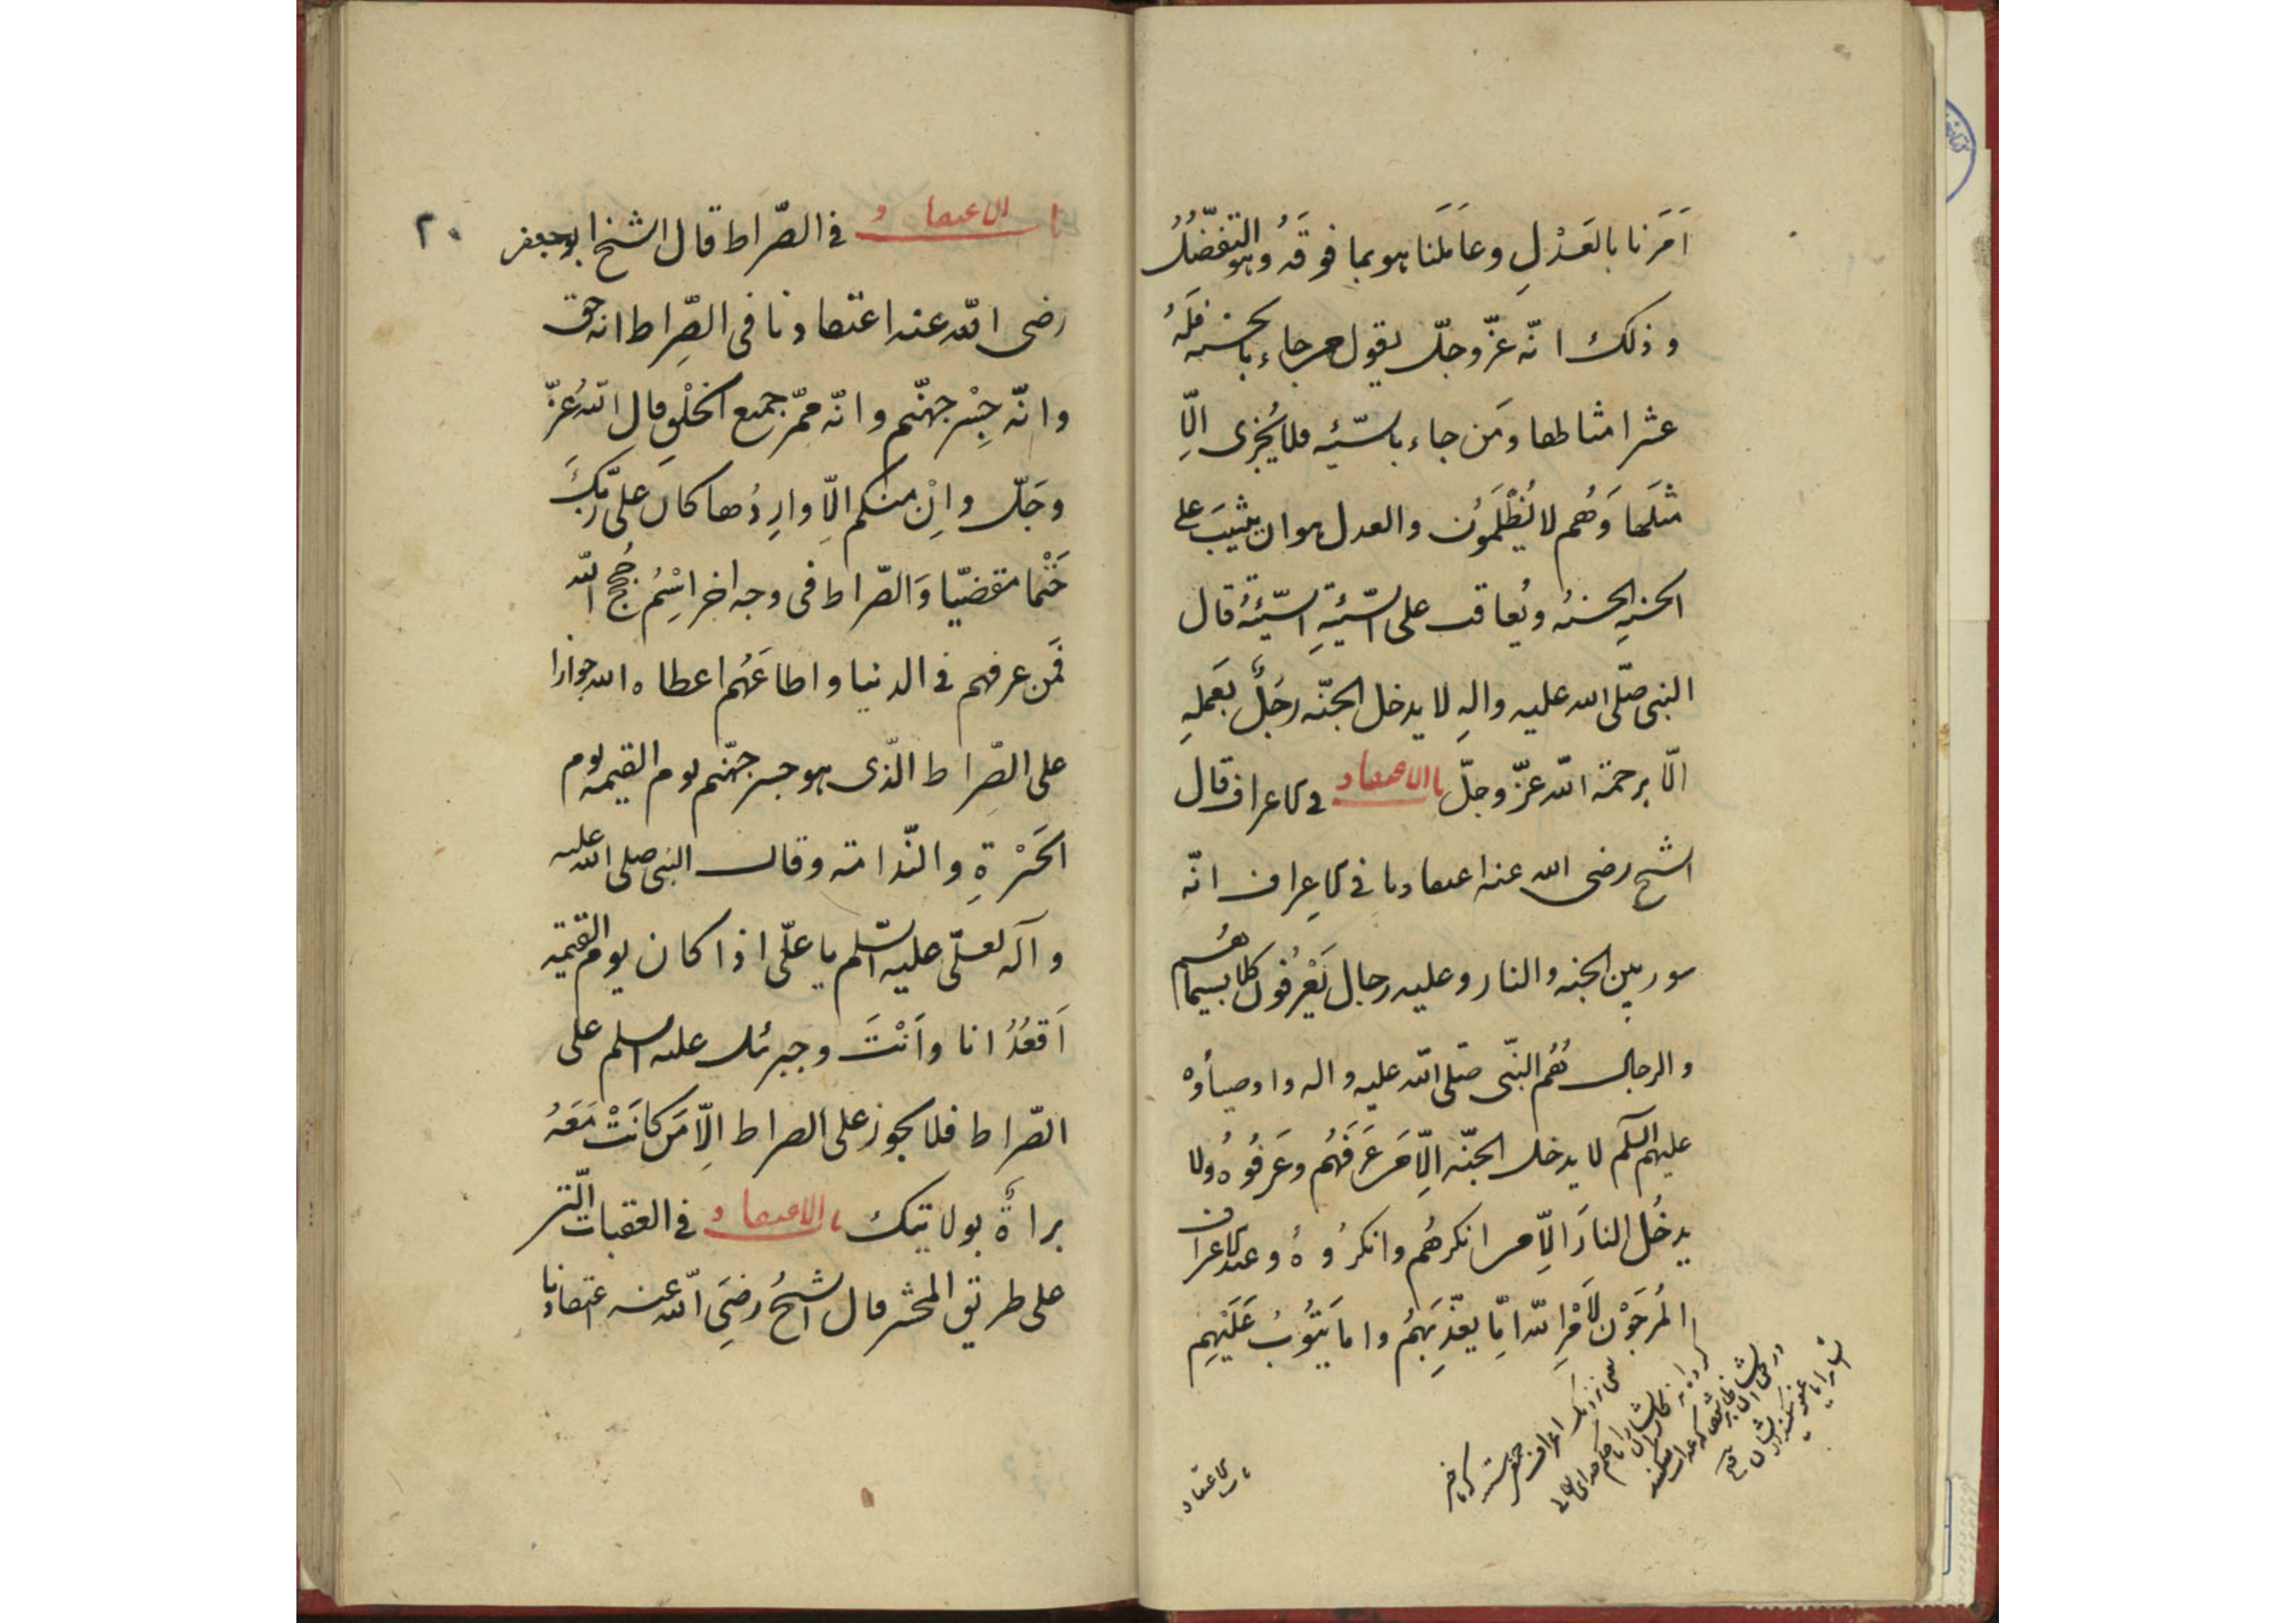 اَمَرَنا بالعَدْلِ وعَامَلَنا هو بما فوقَهُ وهو التفضّلُ
وذلك انّه عزّ وجلّ يقول من جاء بالحسنه فلَهُ
عشر امثالها ومَن جاء بالسّيّئه فلا يُجزى اِلّا
مثلَها وَهُم لا يُظْلَمُون والعدل هو ان يثيبَ على
الحسنهِ الحسنه ويُعاقب على السّيّئةِ السّيّئةَ قال
النبى صلّى الله عليه والهِ لا يدخل الجنّه رَجُلٌ بعَملِهِ
الّا برحمة الله عزّ وجلّ باب الاعتقاد فى الاعراف قال
الشيخ رضى الله عنه اعتقادنا فى الاعراف انّه
سور بين الجنه والنار وعليه رجال يَعْرِفُون كلا بسيماهُم
والرجال هُم النبّى صلّى الله عليه واله واوصيأوه
عليهم السّلم لا يدخل الجنّه اِلّا من عَرَفَهُم وعَرَفُوُه ولا
يدخُل النارَ اِلّا من انكرهُم وانكرُوُهُ وعند الاعراف
المُرجَوْن لأَمْرِ الله اِمّا يعذّبَهُم واما يَتُوُبُ عَلَيْهِم
باب الاعتقاد
٢٠
باب الاعتقاد فى الصّراط قال الشيخ ابوجعفر
رضى الله عنه اعتقادنا فى الصِّراط انه حق
وانّه جِسْر جهنّم وانّه ممّر جميع الخلْقِ قال اللهُ عزّ
وجَلّ واِنْ منكم اِلّا وارِدُها كانَ على ربّكَ
حَتْما مقضيّا وَالصّراط فى وجه اخر اسْمُ حُجَج الله
فَمن عرفهم فى الدنيا واطاعَهُم اعطاه الله جوازا
على الصِّراط الّذى هو جسر جهّنم يوم القيمه يوم
الحَسْرةِ والنّدامة وقال النبى صلى الله عليه
وآله لعلّى عليه السّلم يا علّى اذا كان يوم القيمَة
اَقعُدُ انا واَنْتَ وجبرئل عليه السلم على
الصّراط فلا يجوز على الصراط اِلّا مَن كانَتْ مَعَهُ
براأةٌ بولايتك باب الاعتقاد فى العقبات الّتى
على طريق المحشر قال الشيخُ رضىَ الله عنه اعتقادنا